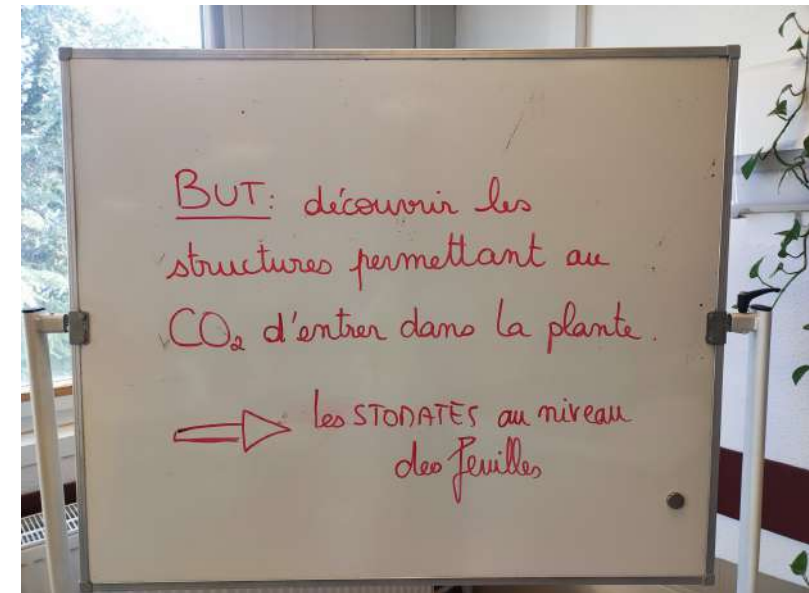 BUT: découvrir les
structures permettant au
CO₂ d'entrer dans la plante.
les STOMATES au niveau
des feuilles